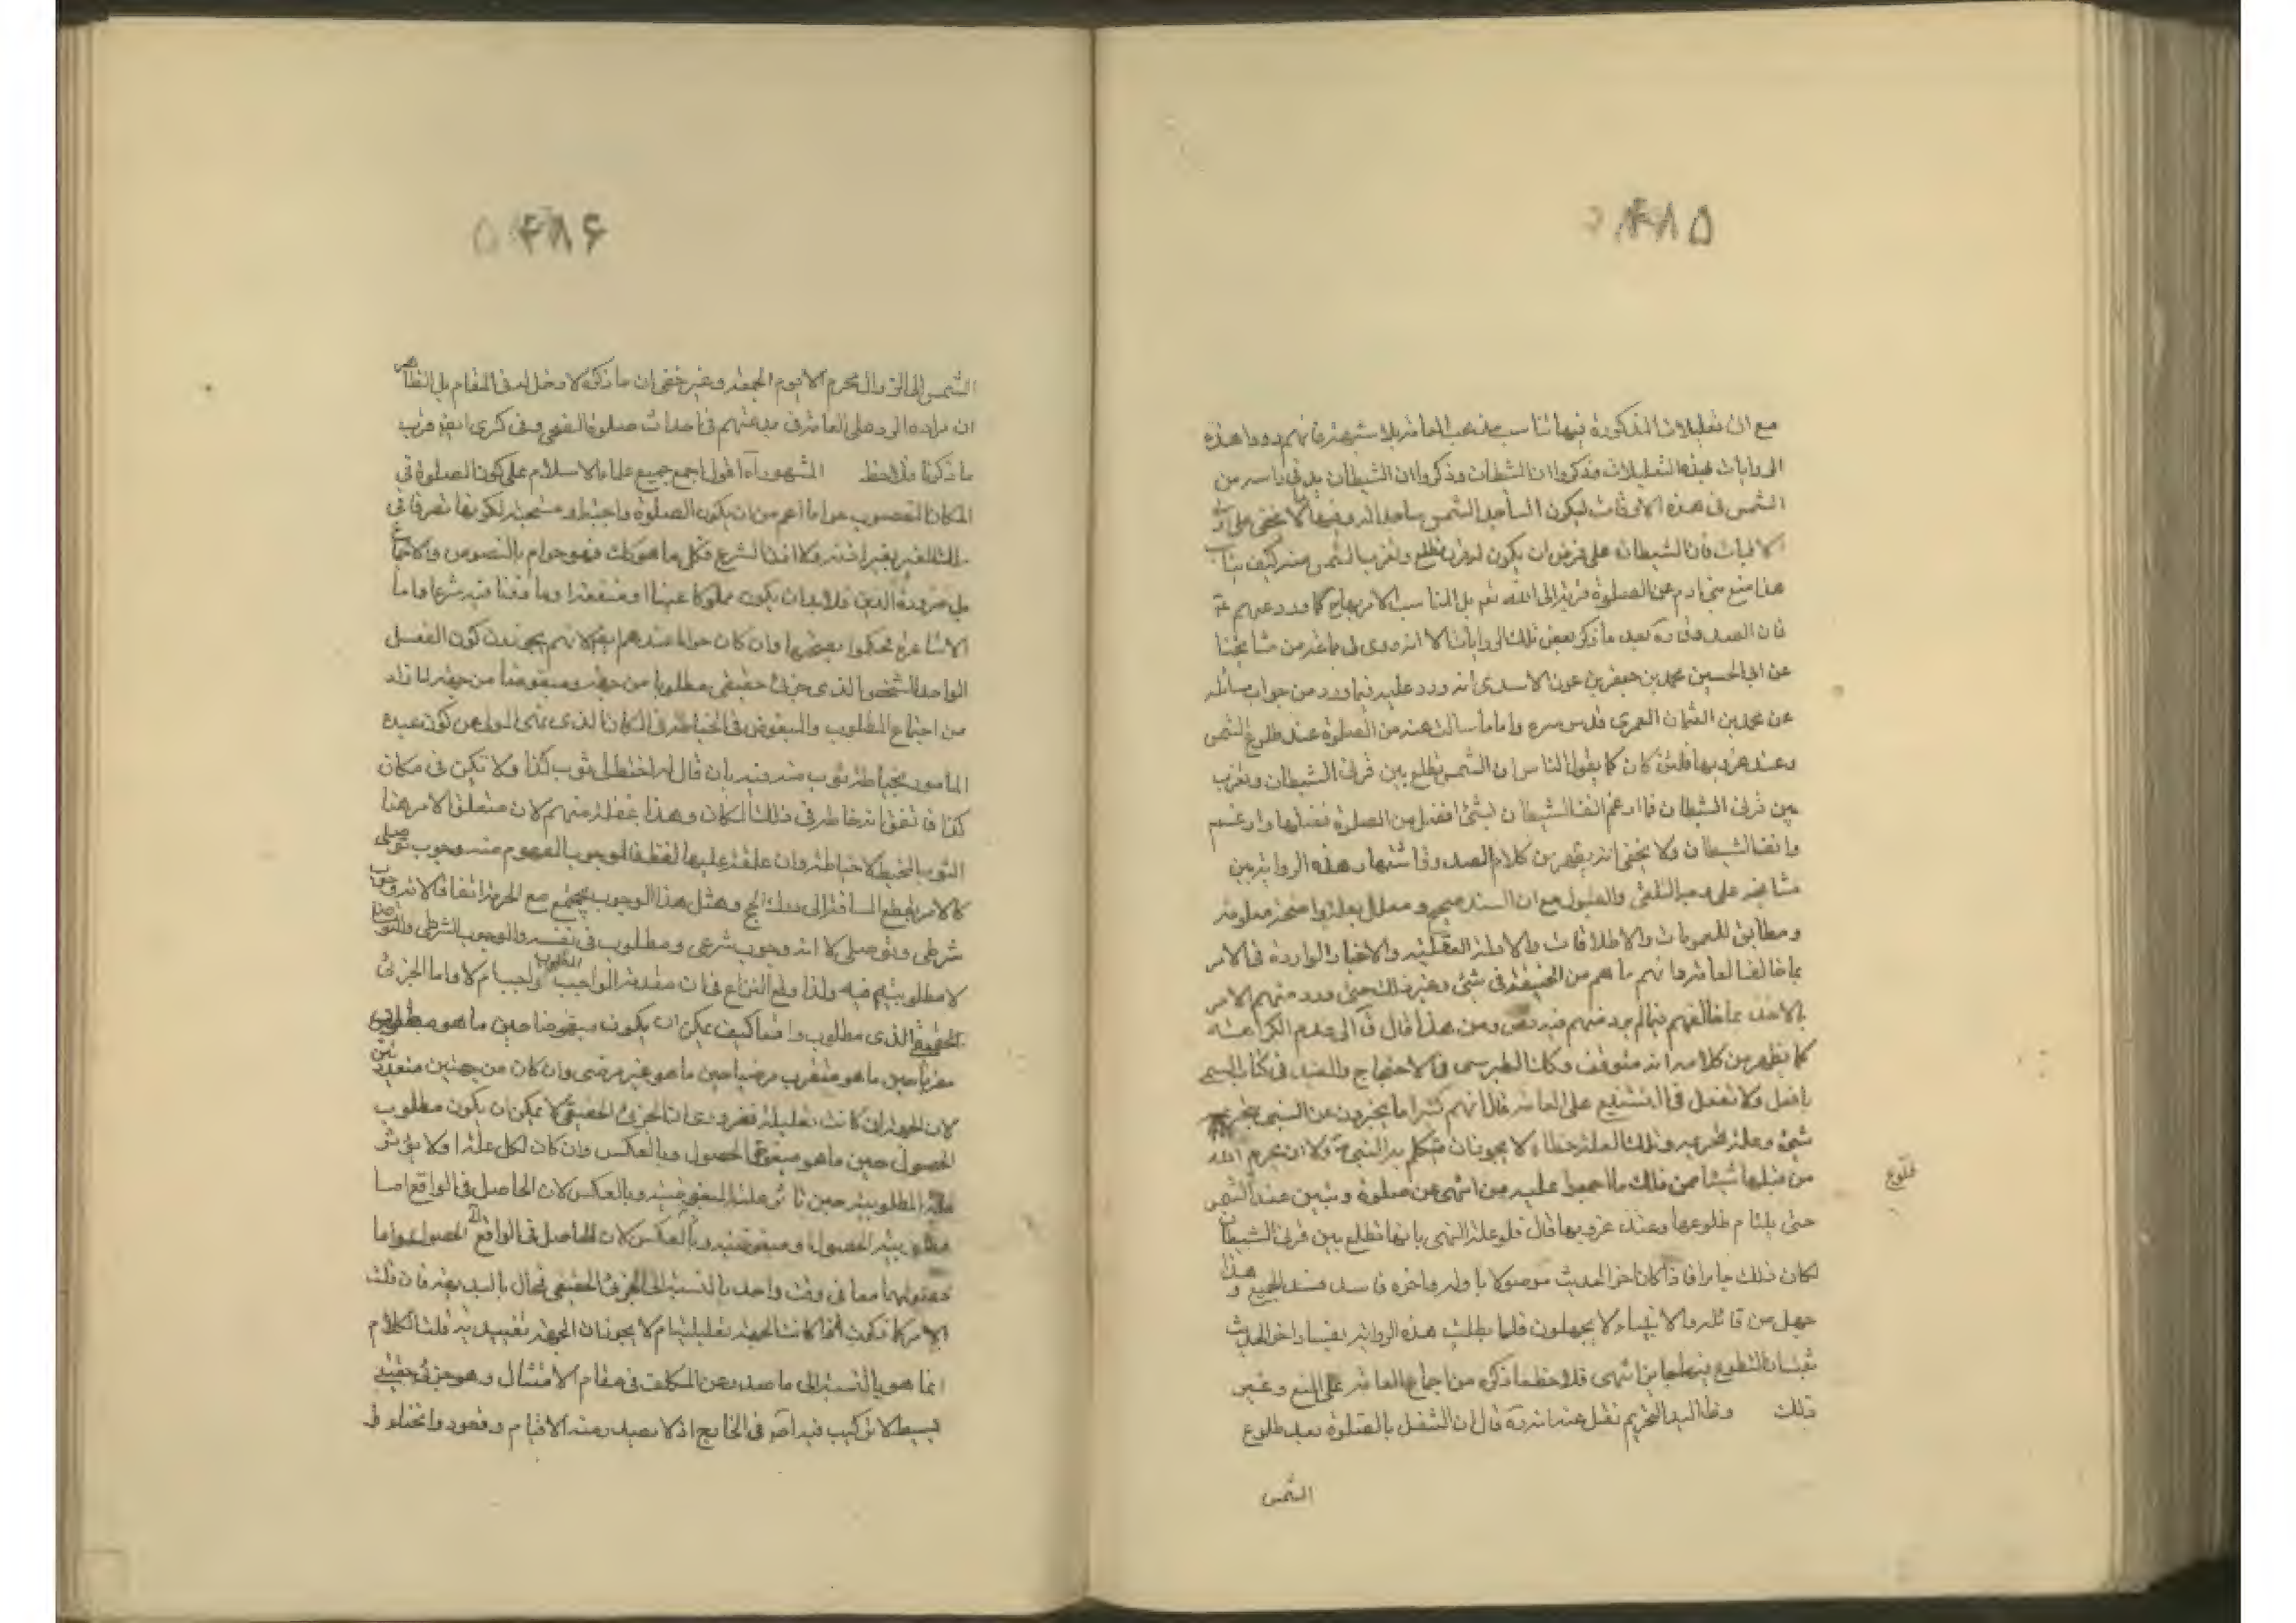 ۴۸۵
مع ان تعليلات المذكورة فيها تناسب مذهب العامة بلا شبهة فانهم رووا هذه
الروايات بهذه التعليلات فذكروا ان الشيطان وذكروا ان الشيطان يدنى راسه من
الشمس فى هذه الاوقات ليكون الساجد الشمس ساجدا له وفيها ما لا يخفى على اولى
الالباب فان الشيطان على فرض ان يكون له قرن تطلع وتغرب الشمس منه كيف يناسب
هذا منع بنى ادم عن الصلوة قربة الى الله نعم بل المناسب الامر بها كما ورد عنهم ع
فان الصدوق ره بعد ما ذكر بعض تلك الروايات الا انه روى لى جماعة من مشايخنا
عن ابى الحسين محمد بن جعفر بن عون الاسدى انه ورد عليه فيما ورد من جواب مسائله
عن محمد بن العثمان العمرى قدس سره واما ما سالت عنه من الصلوة عند طلوع الشمس
وعند غروبها فلئن كان كما يقول الناس ان الشمس تطلع بين قرنى الشيطان وتغرب
بين قرنى الشيطان فما ارغم انف الشيطان بشئ افضل من الصلوة فصلها وارغم
وانف الشيطان ولا يخفى انه يظهر من كلام الصدوق اشتهار هذه الرواية بين
مشايخه على وجه التلقى والقبول مع ان السند صحيح ومعلل بعلة واضحة معلومة
ومطابق للعمومات والاطلاقات والادلة العقلية والاخبار الواردة فى الامر
بما خالف العامة وانهم ما هم من الحنيفة فى شئ وغير ذلك حتى ورد منهم الامر
بالاخذ بما خالفهم فيما لم يرد منهم فيه نص ومن هذا قال فى الى عدم الكراهة
كما يظهر من كلامه انه متوقف وكذا الطبرسى فى الاحتجاج والمفيد فى كتاب المسمى
بافعل ولا تفعل فى التشنيع على العامة قال انهم كثيرا ما يخبرون عن النبى بتحريم
شئ وعلة تحريمه وتلك العلة خطاء لا يجوز ان يتكلم به النبى ص ولا ان يحرم الله
من قبلها شيئا من ذلك ما اجمعوا عليه من النهى عن صلوة وتبين عند الشمس
طلوع
حتى يلتام طلوعها وعند غروبها قال فلو علة النهى بانها تطلع بين قرنى الشيطان
لكان ذلك جايزا فاذا كان اخر الحديث موصولا باوله واخره فاسد فسد الجميع وهذا
جهل من قائله والانبياء لا يجهلون فلما بطلت هذه الرواية بفساد اخر الحديث
ثبت ان التطوع فيهما جايز انتهى فلاحظ ما ذكره من اجماع العامة على المنع وغير
ذلك وظ السيد التحريم نقل عنه انه ره قال ان التنفل بالصلوة بعد طلوع
الشمس
۴۸۶
الشمس الى الزوال محرم الا يوم الجمعة وغير خفى ان ما ذكره لا دخل له فى المقام بل الظاهر
ان مراده الرد على العامة فى بدعتهم فى احداث صلوة الضحى وفى كرى ايضا قرب
ما ذكرنا فلاحظ المشهور آه اقول اجمع جميع علماء الاسلام على كون الصلوة فى
المكان المغصوب حراما اعم من ان يكون الصلوة واجبة او مستحبة لكونها تصرفا فى
ملك الغير بغير اذنه ولا اذن الشرع فكل ما هو كك فهو حرام بالنصوص والاجماع
بل ضرورة الدين فلابد ان يكون مملوكا عينا او منفعة او ماذونا فيه شرعا واما
الاشاعرة فحكموا بصحتها وان كان حراما عندهم ايضا لانهم يجوزون كون الفعل
الواحد الشخصى الذى جزئى حقيقى مطلوبا من جهة ومبغوضا من جهة لما زاد
من اجتماع المطلوب والمبغوض فى الخياطة فى المكان الذى نهى المولى عن كون عبده
المامور بخياطة ثوب منه فيه بان قال له اخط لى ثوب كذا ولا تكن فى مكان
كذا فاتفق انه خاطه فى ذلك المكان وهذا غفلة منهم لان متعلق الامر هنا
الثوب المخيط لا خياطته وان علقه عليها لفظ فالوجوب المفهوم منه وجوب توصلى
كالامر بقطع المسافة الى ملك الحج ومثل هذا الوجوب يجتمع مع الحرمة اتفاقا لانه وجوب
شرطى وتوصلى لا انه وجوب شرعى ومطلوب فى نفسه والوجوب الشرطى والتوصلى
لا مطلوبية فيه ولذا وقع النزاع فى ان مقدمة الواجب المطلوب واجب ام لا واما الجزئى
الحقيقى الذى مطلوب واقعا كيف يمكن ان يكون مبغوضا حين ما هو مطلوب
مقربا حين ما هو متقرب مرضيا حين ما هو غير مرضى وان كان من جهتين متعددتين
لان الجهة ان كانت تعليلية فضرورى ان الجزئى الحقيقى لا يمكن ان يكون مطلوب
الحصول حين ما هو مبغوض الحصول وبالعكس وان كان لكل علة اولا يؤثر
علة المطلوبية حين تاثير علة المبغوضية وبالعكس لان الحاصل فى الواقع اما
مطلوبية الحصول او مبغوضية وبالعكس لان الحاصل فى الواقع الحصول واما
حصولهما معا فى وقت واحد بالنسبة الى الجزئى الحقيقى فحال بالبديهة فان قلت
الامر كما ذكرت اذا كانت الجهة تعليلية ام لا يجوز ان الجهة تقييدية قلت الكلام
انما هو بالنسبة الى ما صدر عن المكلف فى مقام الامتثال وهو جزئى حقيقى
بسيط لا تركيب فيه اصلا فى الخارج اذ لا يصدر منه الا قيام وقعود وانحناء وظ